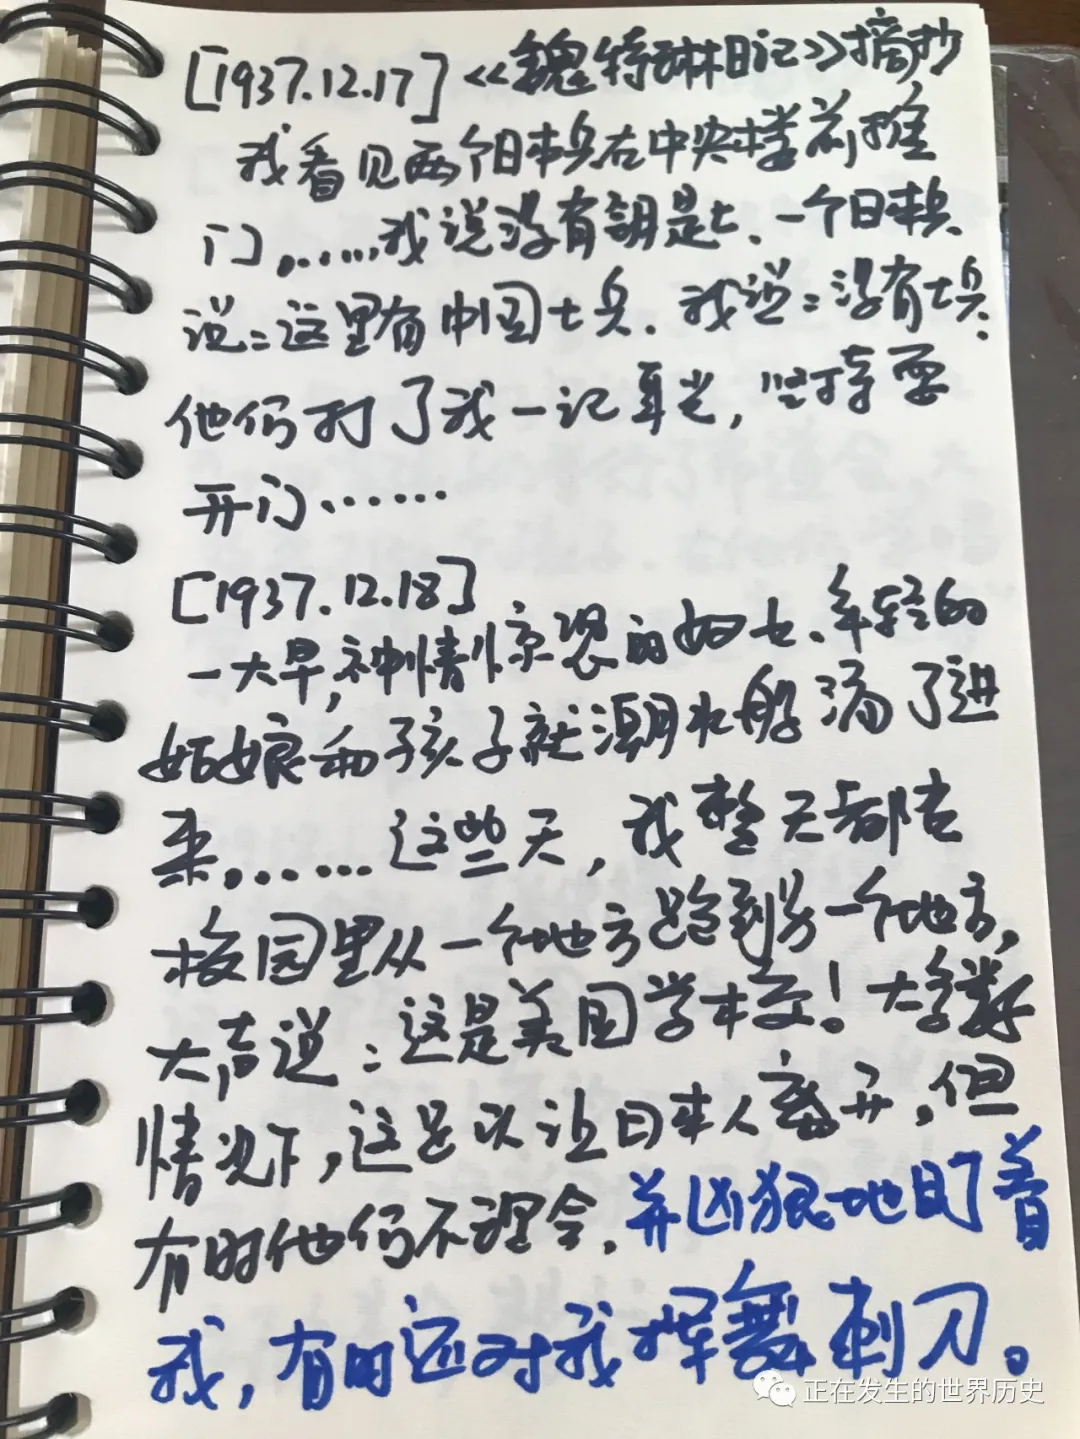 [1937.12.17]《魏特琳日记》摘抄
我看见两个日本兵在中央楼前推
门,……我说没有钥匙、一个日本兵
说:这里有中国士兵.我说:没有士兵.
他们打了我一记耳光,坚持要
开门……
[1937.12.18]
一大早,神情惊恐的妇女、年轻的
姑娘和孩子就潮水般涌了进
来,……这些天,我整天都在
校园里从一个地方跑到另一个地方,
大声说:这是美国学校!大多数
情况下,这足以让日本人离开,但
有时他们不理会,并凶狠地盯着
我,有时还对我挥舞刺刀。
正在发生的世界历史